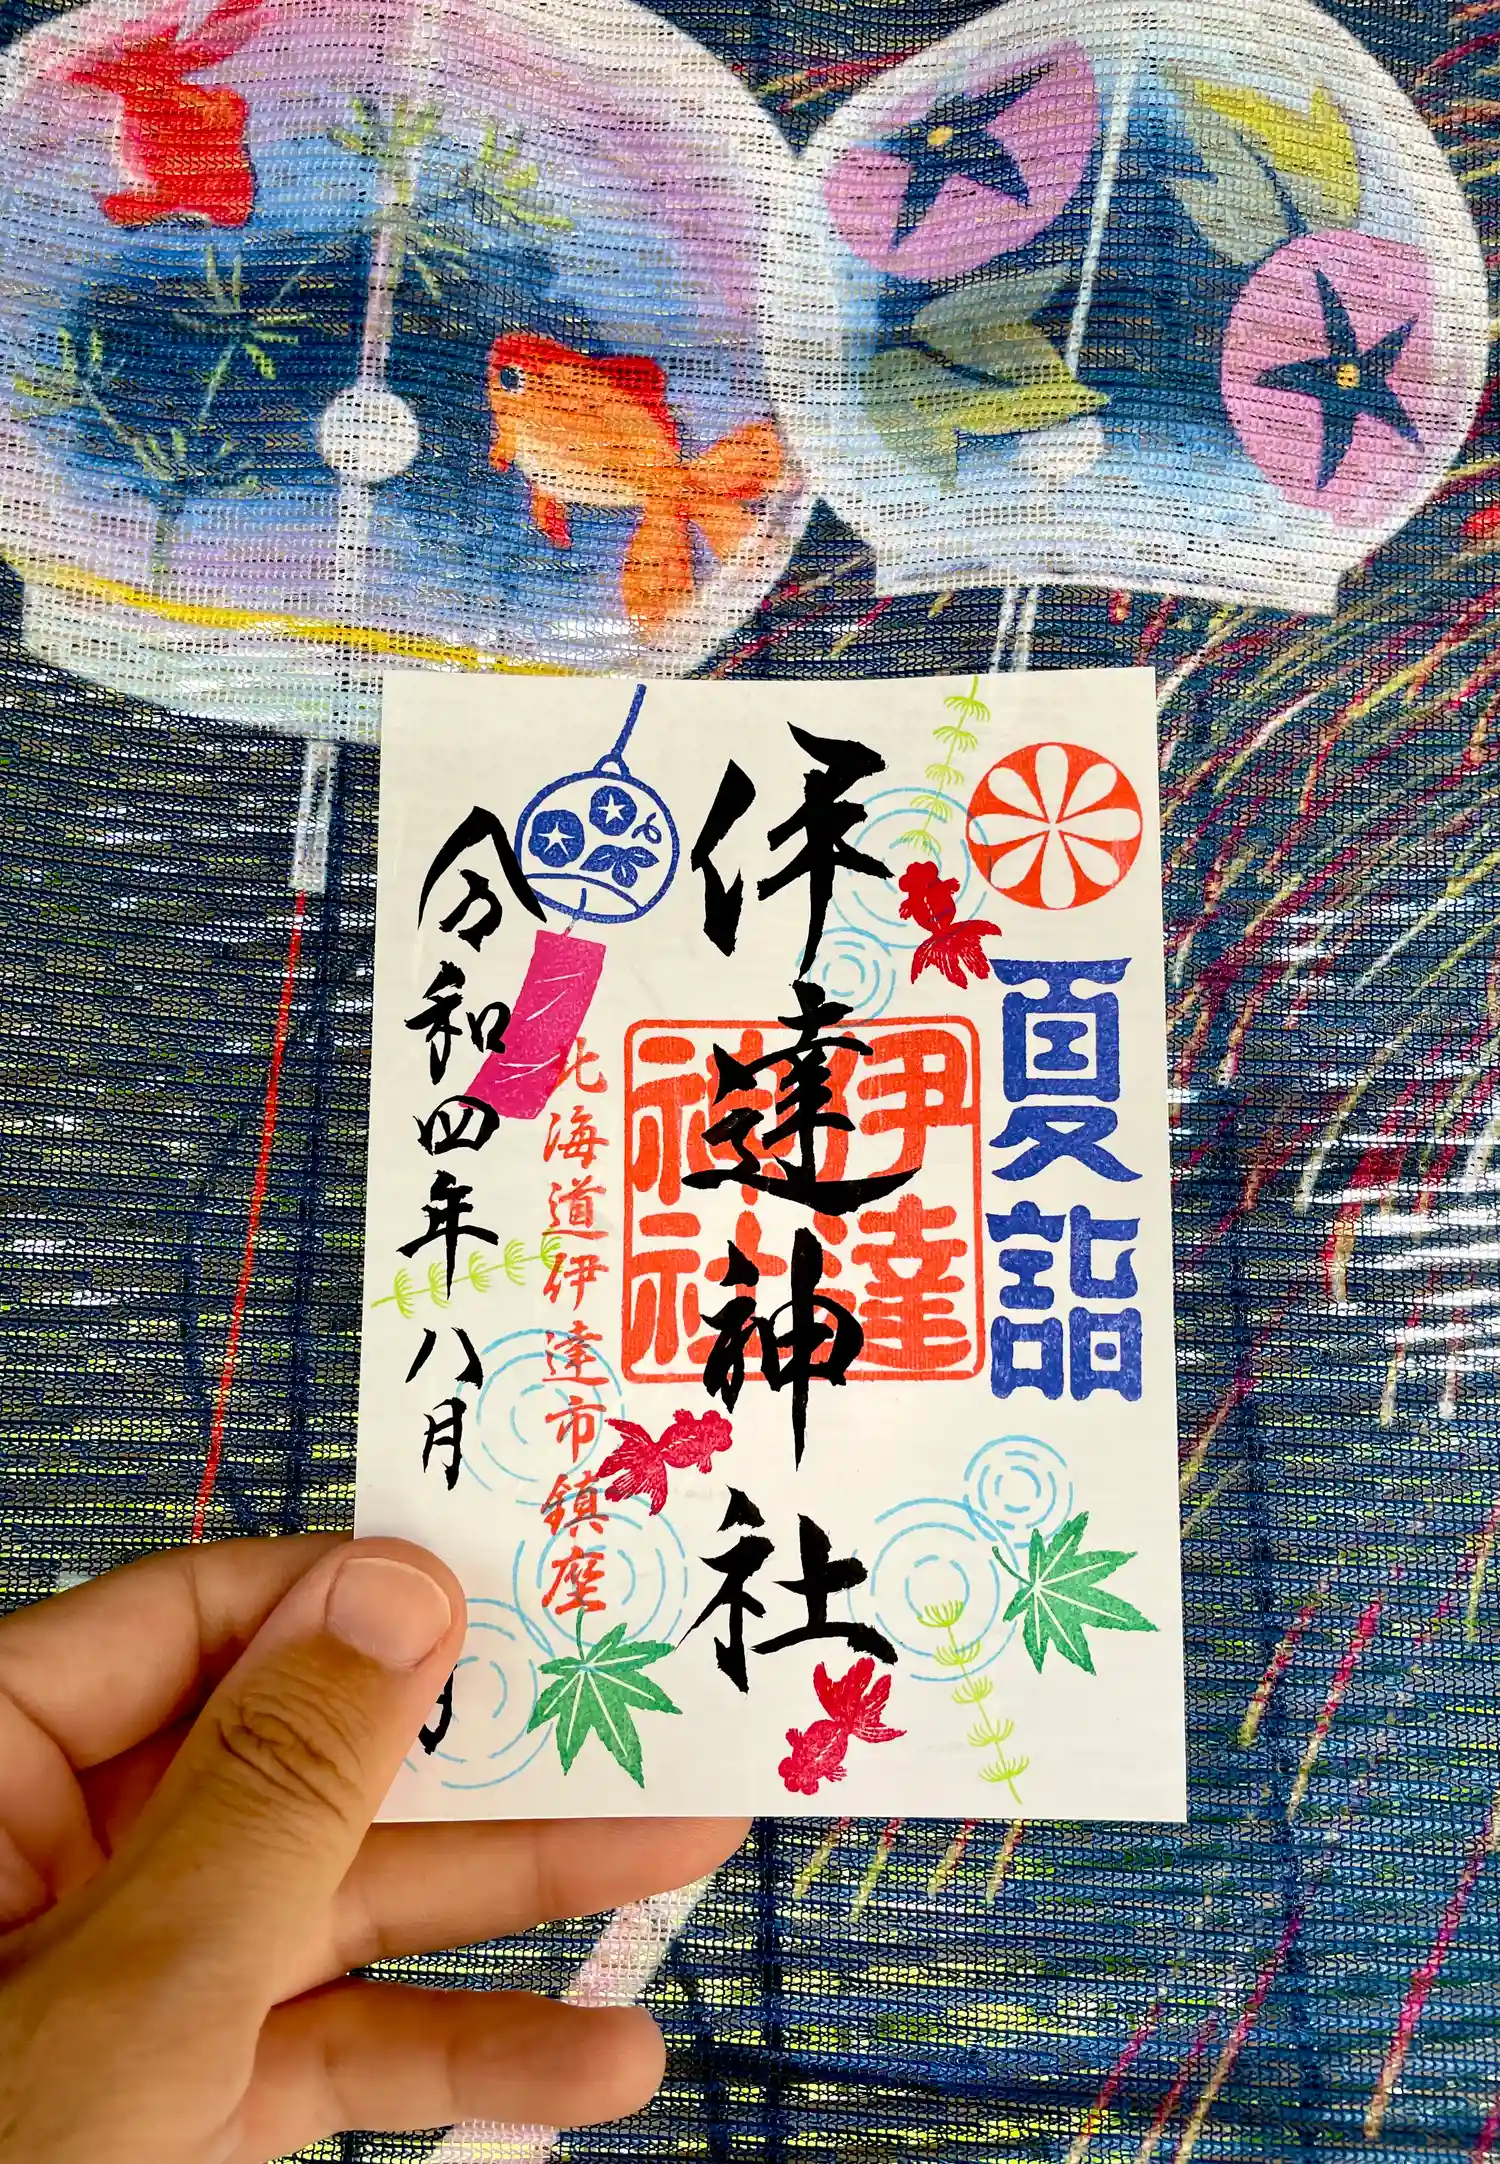 夏詣
伊達神社
伊達神社
北海道伊達市鎮座
令和四年八月